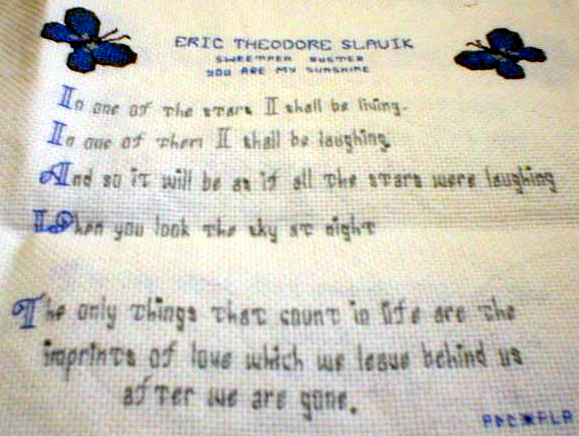 ERIC THEODORE SLAVIK
SWEETPEA BUSTER
YOU ARE MY SUNSHINE
In one of the stars I shall be living.
In one of them I shall be laughing.
And so it will be as if all the stars were laughing
When you look the sky at night
The only things that count in life are the
imprints of love which we leave behind us
after we are gone.